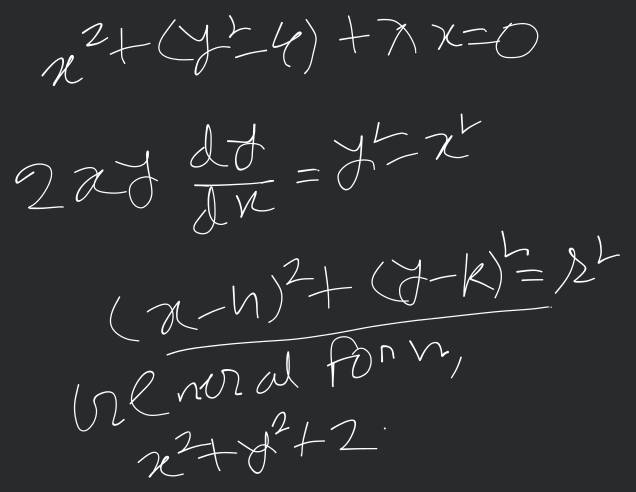 x²+(y²-4)+λx=0
2xy dy/dx = y²-x²
(x-h)²+(y-k)²=r²
General form,
x²+y²+2.